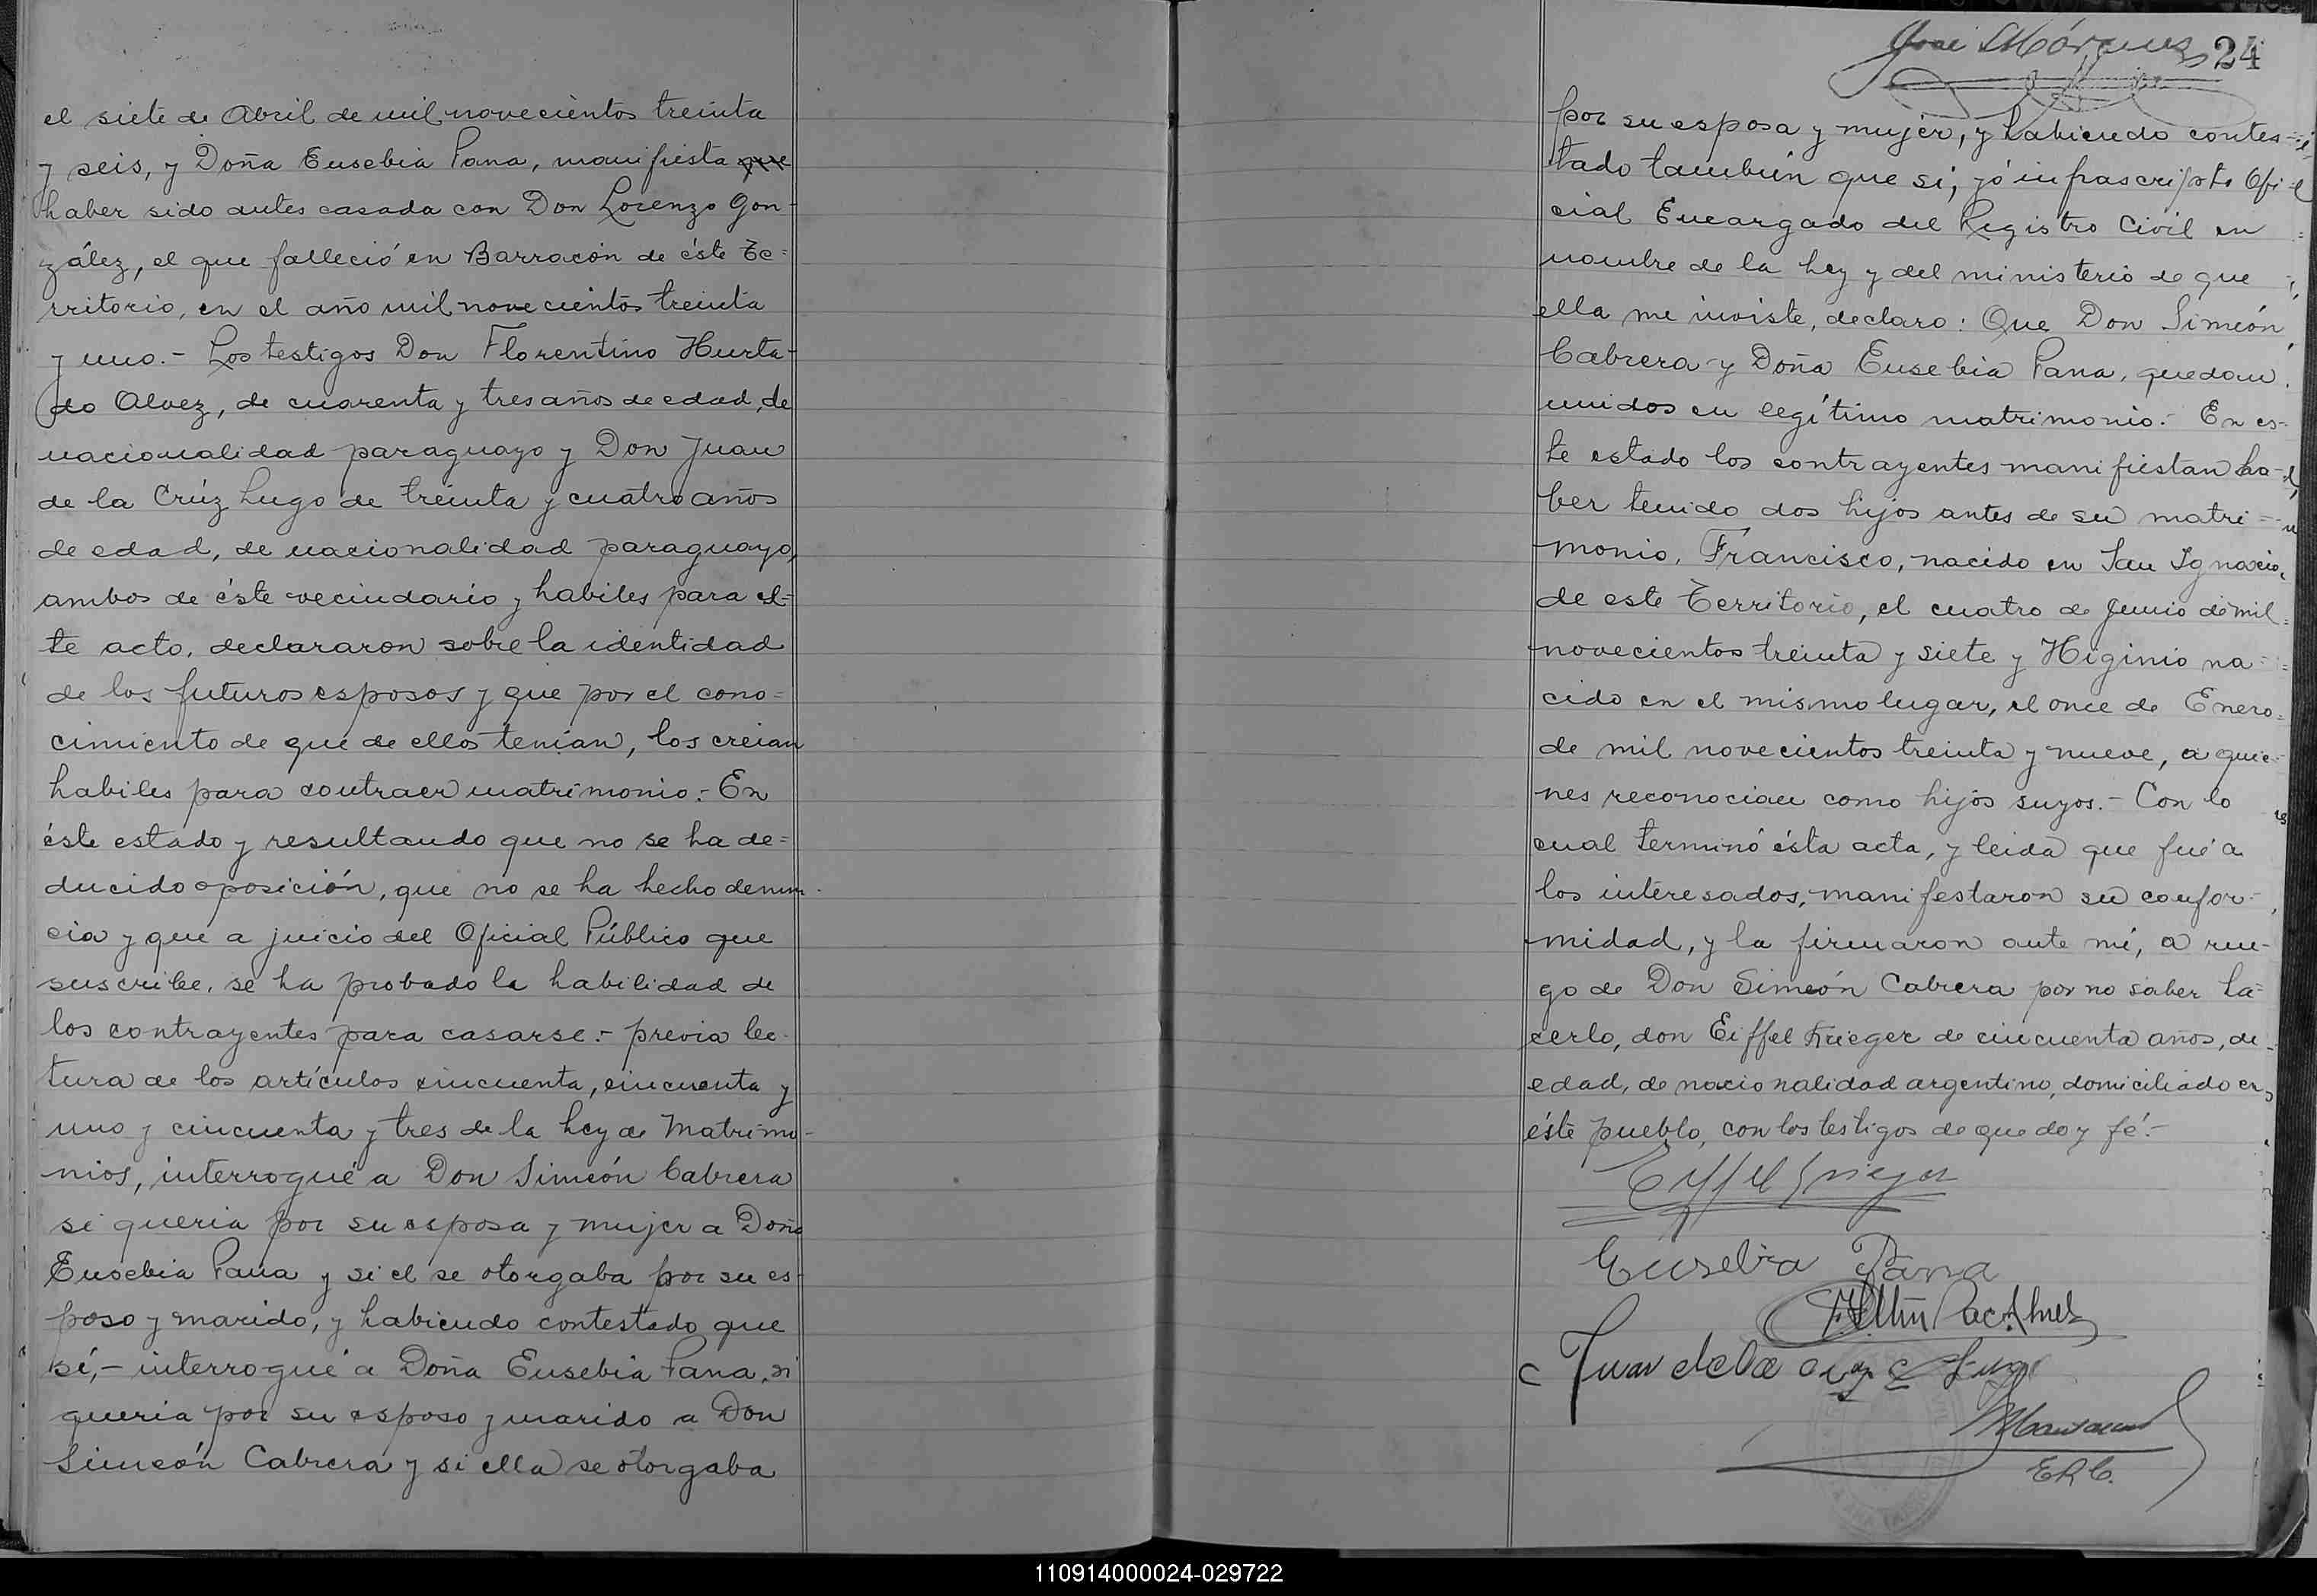 el siete de Abril de mil novecientos treinta
y seis, y Doña Eusebia Pana, manifiesta que
haber sido antes casada con Don Lorenzo Gon-
zález, el que falleció en Barracón de éste Te=
rritorio, en el año mil novecientos treinta
y uno.- Los testigos Don Florentino Hurta-
do Alvez, de cuarenta y tres años de edad, de
nacionalidad paraguayo y Don Juan
de la Crúz Lugo de treinta y cuatro años
de edad, de nacionalidad paraguayo,
ambos de éste vecindario y habiles para es=
te acto, declararon sobre la identidad
de los futuros esposos y que por el cono=
cimiento de que de ellos tenían, los creian
habiles para contraer matrimonio.- En
éste estado y resultando que no se ha de=
ducido oposición, que no se ha hecho denun-
cia y que a juicio del Oficial Público que
suscribe, se ha probado la habilidad de
los contrayentes para casarse.- previa lec-
tura de los artículos cincuenta, cincuenta y
uno y cincuenta y tres de la Ley de Matrimo-
nios, interrogué a Don Simeón Cabrera
si queria por su esposa y mujer a Doña
Eusebia Pana y si el se otorgaba por su es-
poso y marido, y habiendo contestado que
sí,- interrogué a Doña Eusebia Pana, si
queria por su esposo y marido a Don
Simeón Cabrera y si ella se otorgaba
José Márquez 24
por su esposa y mujer, y habiendo contes=
tado también que sí, yó infrascripto Ofi-
cial Encargado del Registro Civil en
nombre de la Ley y del ministerio de que
ella me inviste, declaro: Que Don Simeón
Cabrera y Doña Eusebia Pana, quedan
unidos en legítimo matrimonio.- En es-
te estado los contrayentes manifiestan ha-
ber tenido dos hijos antes de su matri=
monio, Francisco, nacido en San Ignacio,
de este Territorio, el cuatro de Junio de mil
novecientos treinta y siete y Higinio na=
cido en el mismo lugar, el once de Enero
de mil novecientos treinta y nueve, a quie-
nes reconocian como hijos suyos.- Con lo
cual terminó ésta acta, y leida que fué a
los interesados, manifestaron su confor-
midad, y la firmaron ante mí, a rue-
go de Don Simeón Cabrera por no saber ha=
cerlo, don Eiffel Krieger de cincuenta años, de
edad, de nacionalidad argentino, domiciliado en
éste pueblo, con los testigos de que doy fé.-
Eiffel Krieger
Eusebia Pana
Juan de la cruz Lugo
E.R.C.
110914000024-029722